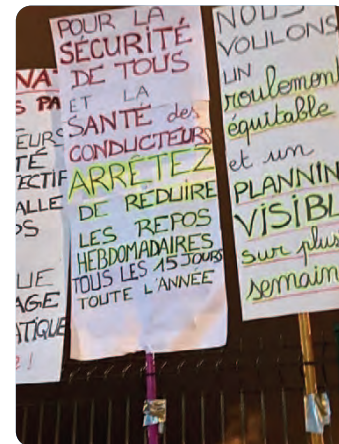 POUR LA
SÉCURITÉ
DE TOUS
ET LA
SANTÉ des
CONDUCTEURS
ARRÊTEZ
DE RÉDUIRE
LES REPOS
HEBDOMADAIRES
TOUS LES 15 JOURS
TOUTE L'ANNÉE
NOUS
VOULONS
UN
roulement
équitable
et un
PLANNIN
VISIBL
sur plus
semain